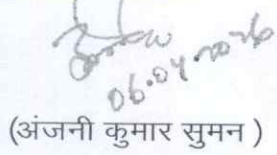 06.04.2026
(अंजनी कुमार सुमन )